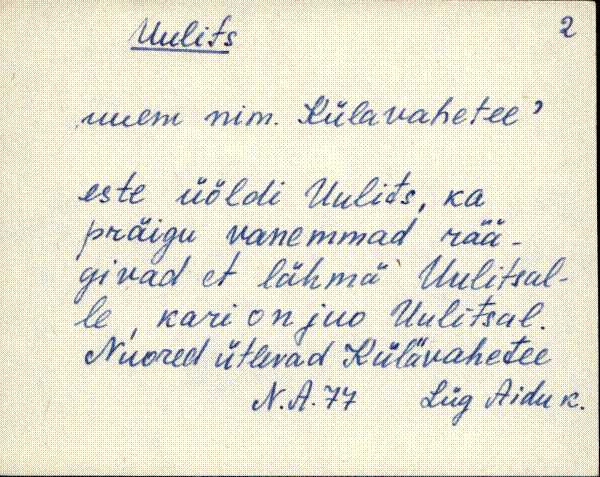 Uulits
2
uuem nim. Külavahetee’
este üöldi Uulits, ka
präigu vanemmad rää-
givad et lähmä Uulitsal-
le, kari on juo Uulitsal.
Nuored ütlevad Külävahetee
N.A. 77 Lüg Aidu k.